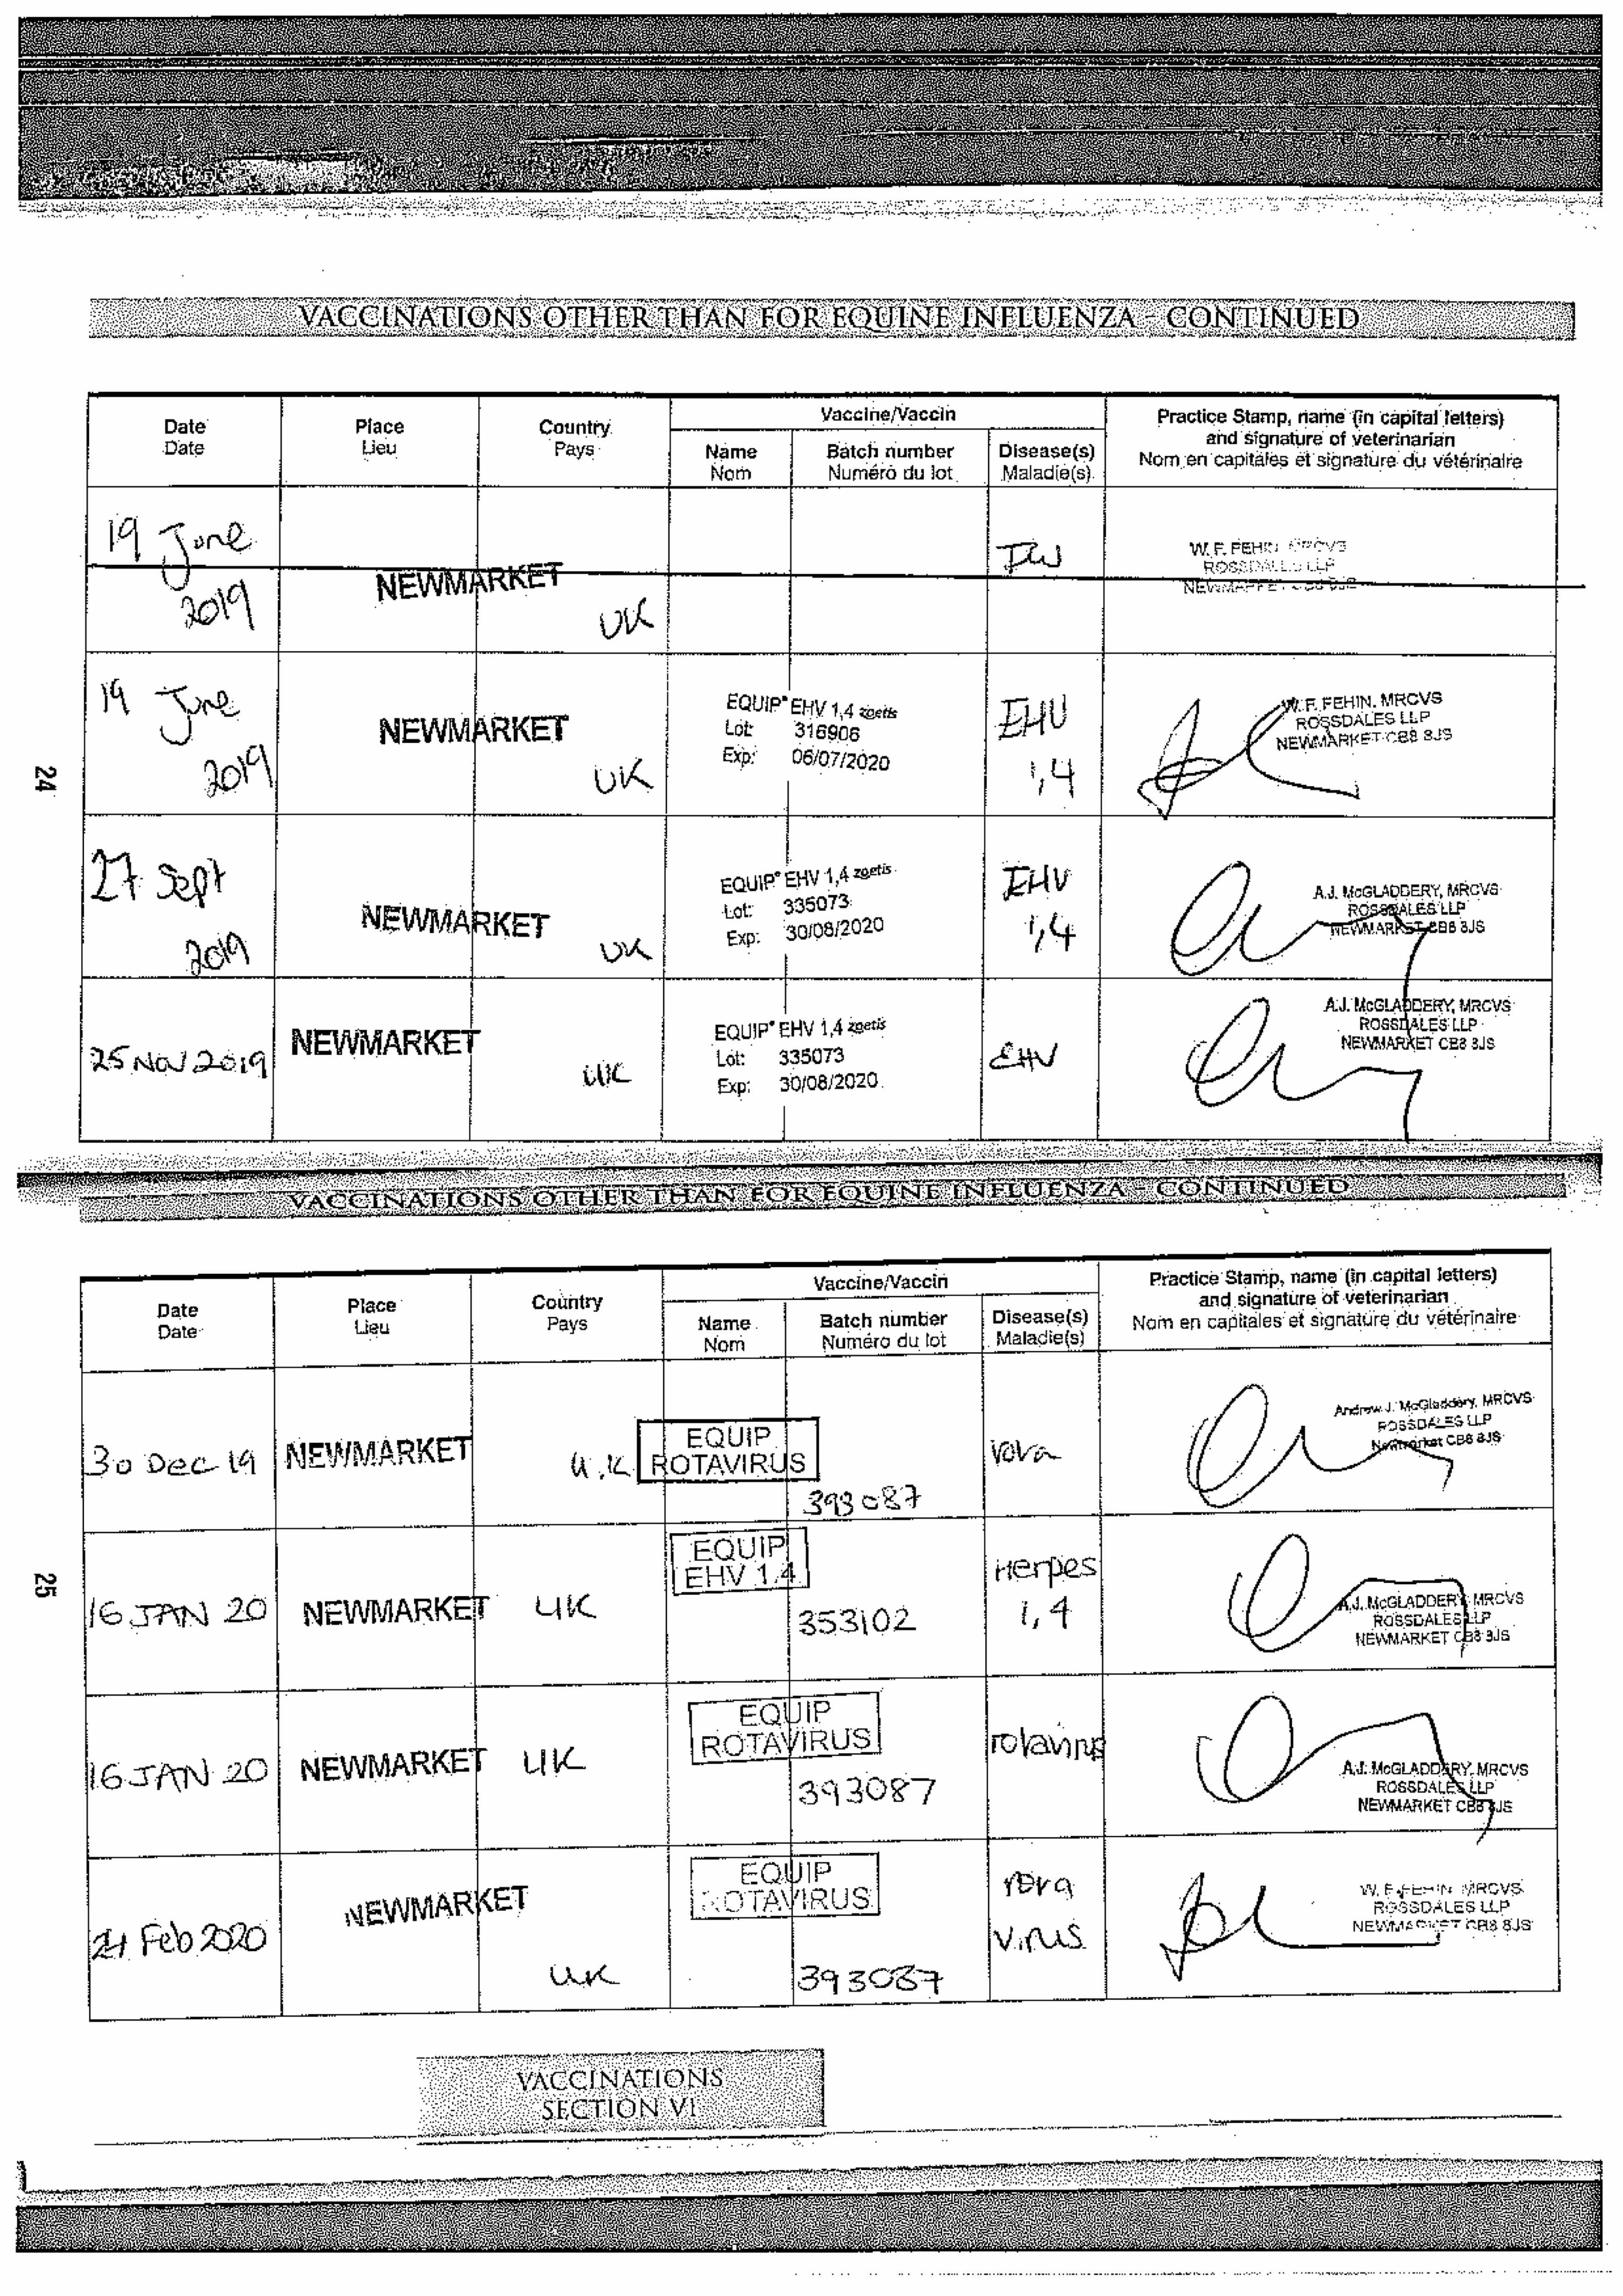 VACCINATIONS OTHER THAN FOR EQUINE INFLUENZA - CONTINUED
Date
Date
Place
Lieu
Country
Pays
Vaccine/Vaccin
Name
Nom
Batch number
Numéro du lot
Disease(s)
Maladie(s)
Practice Stamp, name (in capital letters)
and signature of veterinarian
Nom en capitales et signature du vétérinaire
19 June
2019
NEWMARKET
UK
W. F. FEHIN MRCVS
ROSSDALES LLP
NEWMARKET CB8 8JS
19 June
2019
NEWMARKET
UK
EQUIP® EHV 1,4 zoetis
Lot: 316906
Exp: 06/07/2020
EHV
1,4
W. F. FEHIN, MRCVS
ROSSDALES LLP
NEWMARKET CB8 8JS
27 Sept
2019
NEWMARKET
UK
EQUIP® EHV 1,4 zoetis
Lot: 335073
Exp: 30/08/2020
EHV
1,4
A.J. McGLADDERY, MRCVS
ROSSDALES LLP
NEWMARKET CB8 8JS
25 NOV 2019
NEWMARKET
UK
EQUIP® EHV 1,4 zoetis
Lot: 335073
Exp: 30/08/2020
EHV
A.J. McGLADDERY, MRCVS
ROSSDALES LLP
NEWMARKET CB8 8JS
24
VACCINATIONS OTHER THAN FOR EQUINE INFLUENZA - CONTINUED
Date
Date
Place
Lieu
Country
Pays
Vaccine/Vaccin
Name
Nom
Batch number
Numéro du lot
Disease(s)
Maladie(s)
Practice Stamp, name (in capital letters)
and signature of veterinarian
Nom en capitales et signature du vétérinaire
30 Dec 19
NEWMARKET
U.K
EQUIP
ROTAVIRUS
393087
rota
Andrew J. McGladdery, MRCVS
ROSSDALES LLP
Newmarket CB8 8JS
16 JAN 20
NEWMARKET
UK
EQUIP
EHV 1.4
353102
Herpes
1, 4
A.J. McGLADDERY, MRCVS
ROSSDALES LLP
NEWMARKET CB8 8JS
16 JAN 20
NEWMARKET
UK
EQUIP
ROTAVIRUS
393087
rotavirus
A.J. McGLADDERY, MRCVS
ROSSDALES LLP
NEWMARKET CB8 8JS
Feb 2020
NEWMARKET
UK
EQUIP
ROTAVIRUS
393087
rota
virus
W. F. FEHIN MRCVS
ROSSDALES LLP
NEWMARKET CB8 8JS
25
VACCINATIONS
SECTION VI